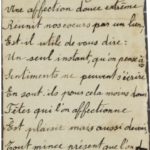 Une affection douce extrême
Réunit nos cœurs par un lien,
Est-il utile de vous dire:
Un seul instant, qu'on pense à
Sentiments ne peuvent s'écrire
En sont-ils pour cela moins
Têtes qui l'on affectionne
Est plaisir mais aussi devoir
Tout mince présent que l'on